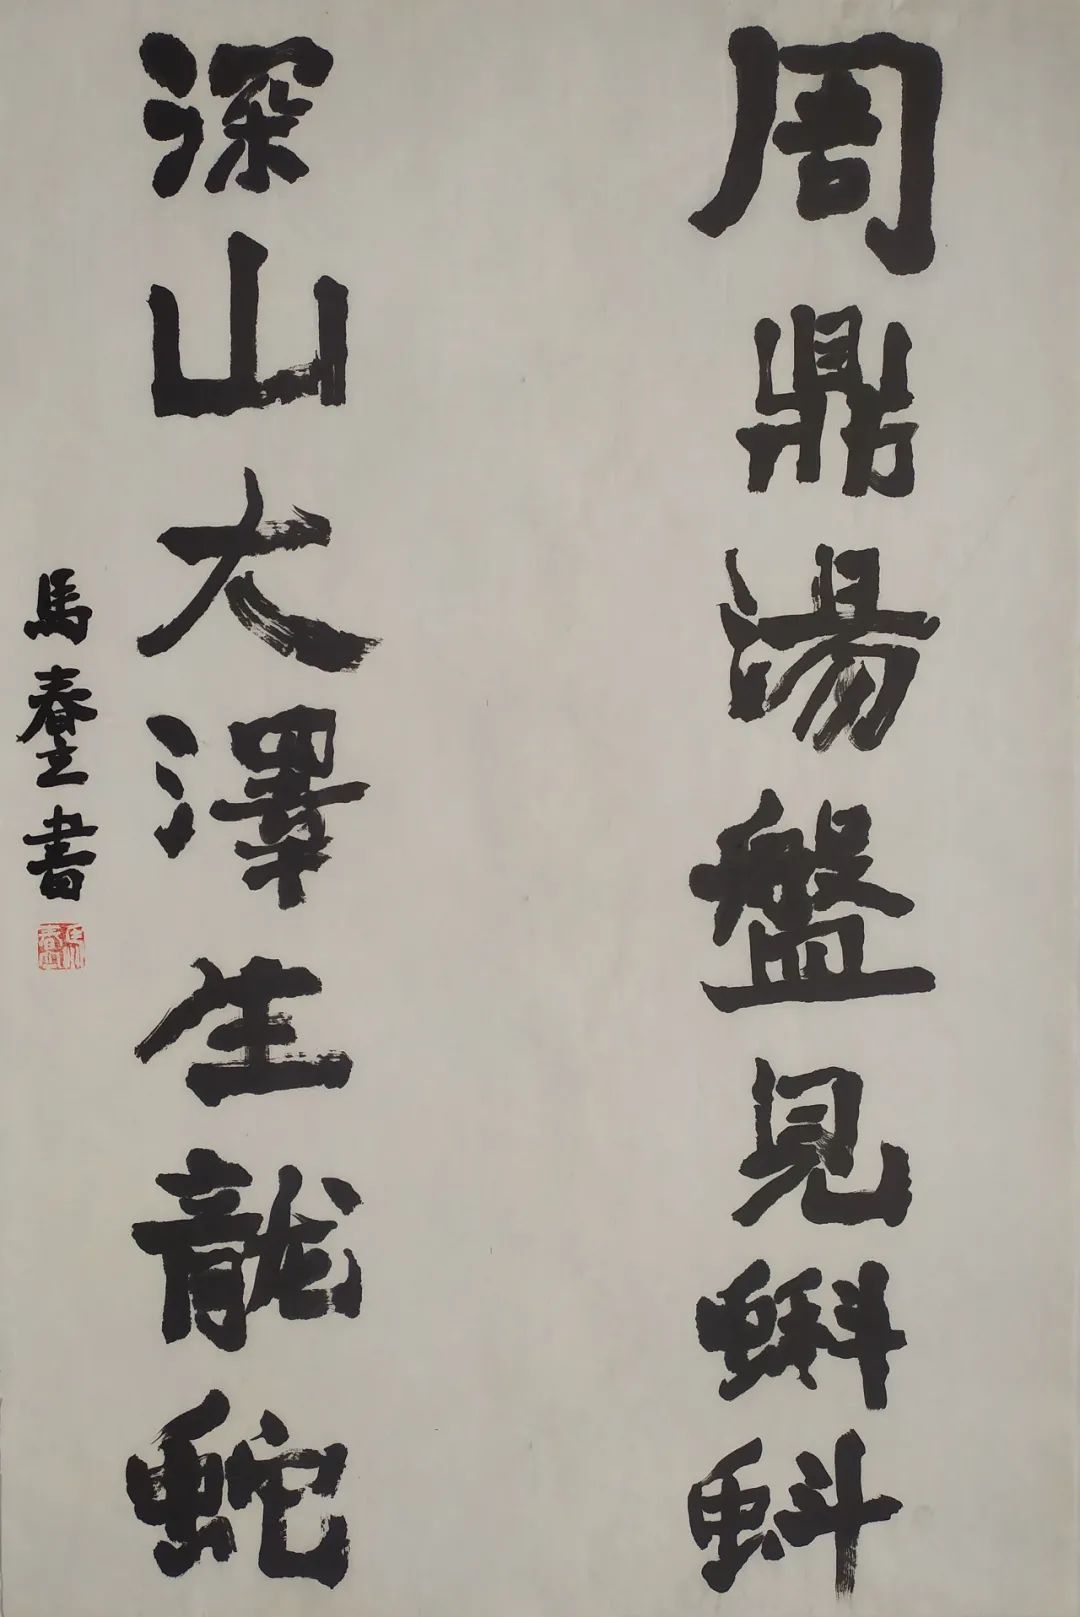 周鼎湯盤見蝌蚪
深山大澤生龍蛇
馬春 書